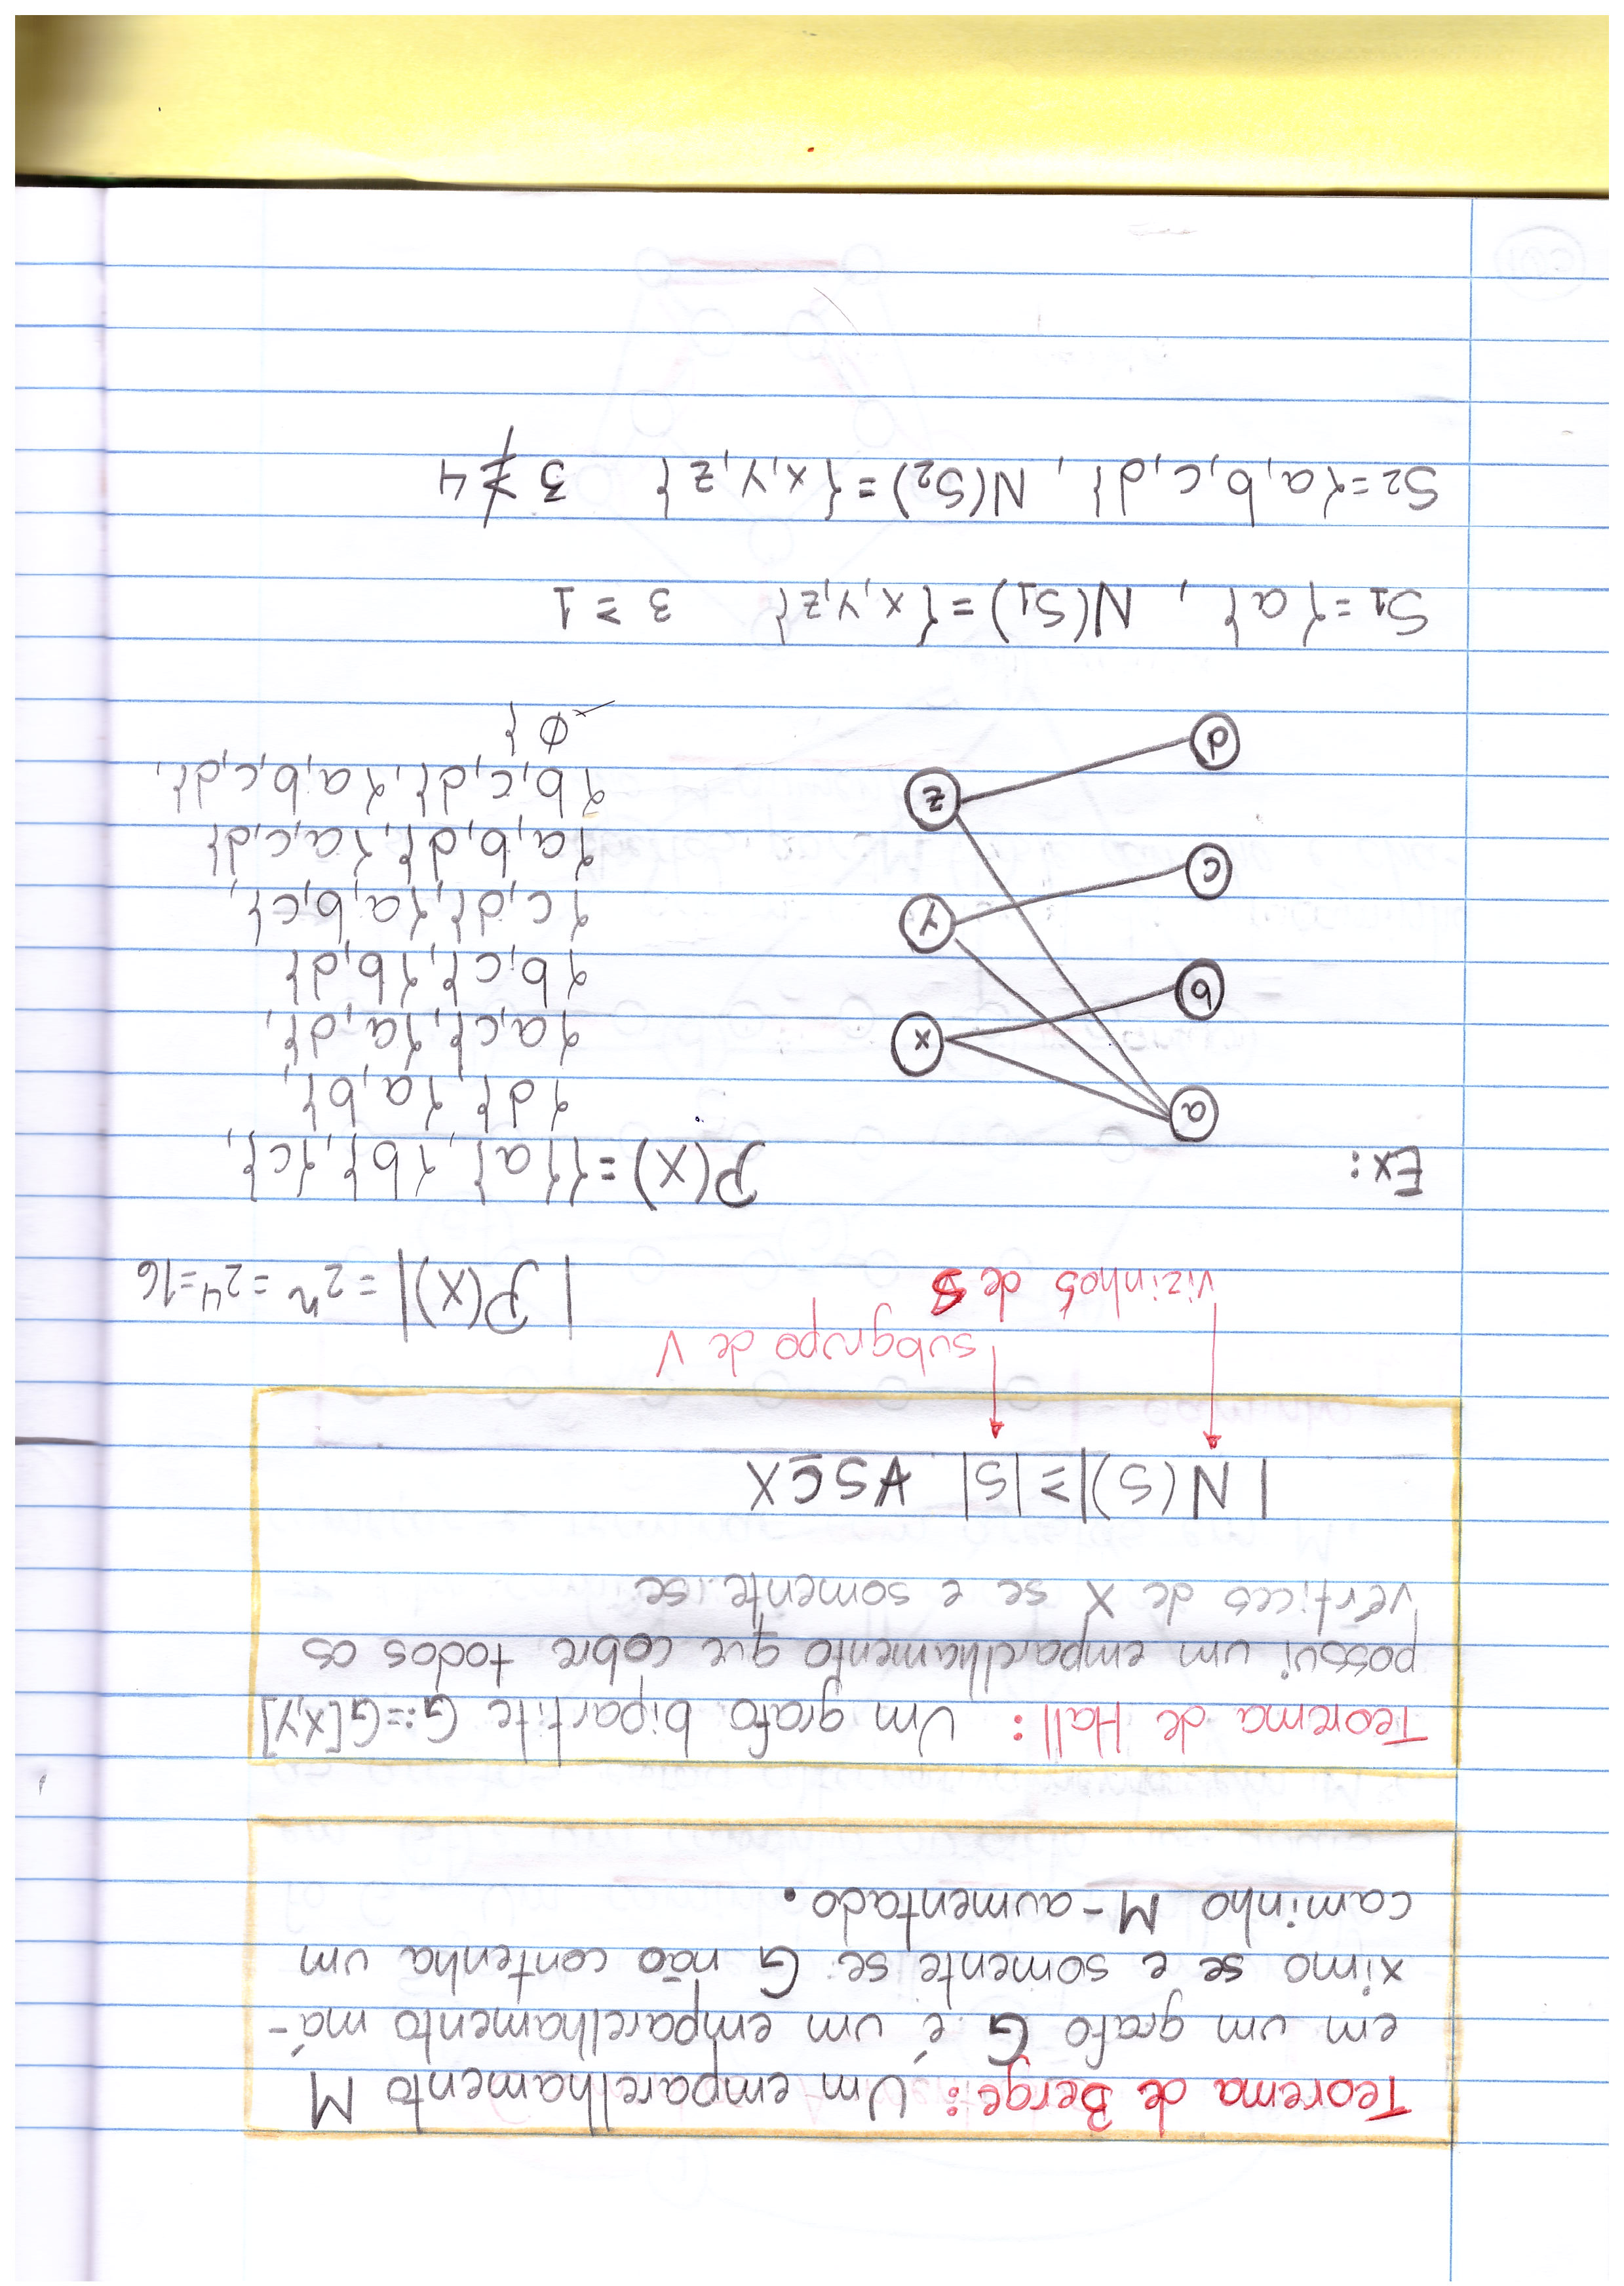 Teorema de Berge: Um emparelhamento M
em um grafo G é um emparelhamento má-
ximo se e somente se G não contenha um
caminho M-aumentado.
Teorema de Hall: Um grafo bipartite G:=G[X,Y]
possui um emparelhamento que cobre todos os
vértices de X se e somente se
|N(S)| ≥ |S| ∀S⊆X
subgrupo de V
vizinhos de S
|P(X)| = 2ⁿ = 2⁴ = 16
Ex:
P(X) = {{a}, {b}, {c},
{d}, {a,b},
{a,c}, {a,d},
{b,c}, {b,d}
{c,d}, {a,b,c},
{a,b,d}, {a,c,d}
{b,c,d}, {a,b,c,d},
∅}
a
x
b
y
c
z
d
S1 = {a}, N(S1) = {x,y,z} 3 ≥ 1
S2 = {a,b,c,d}, N(S2) = {x,y,z} 3 ≱ 4